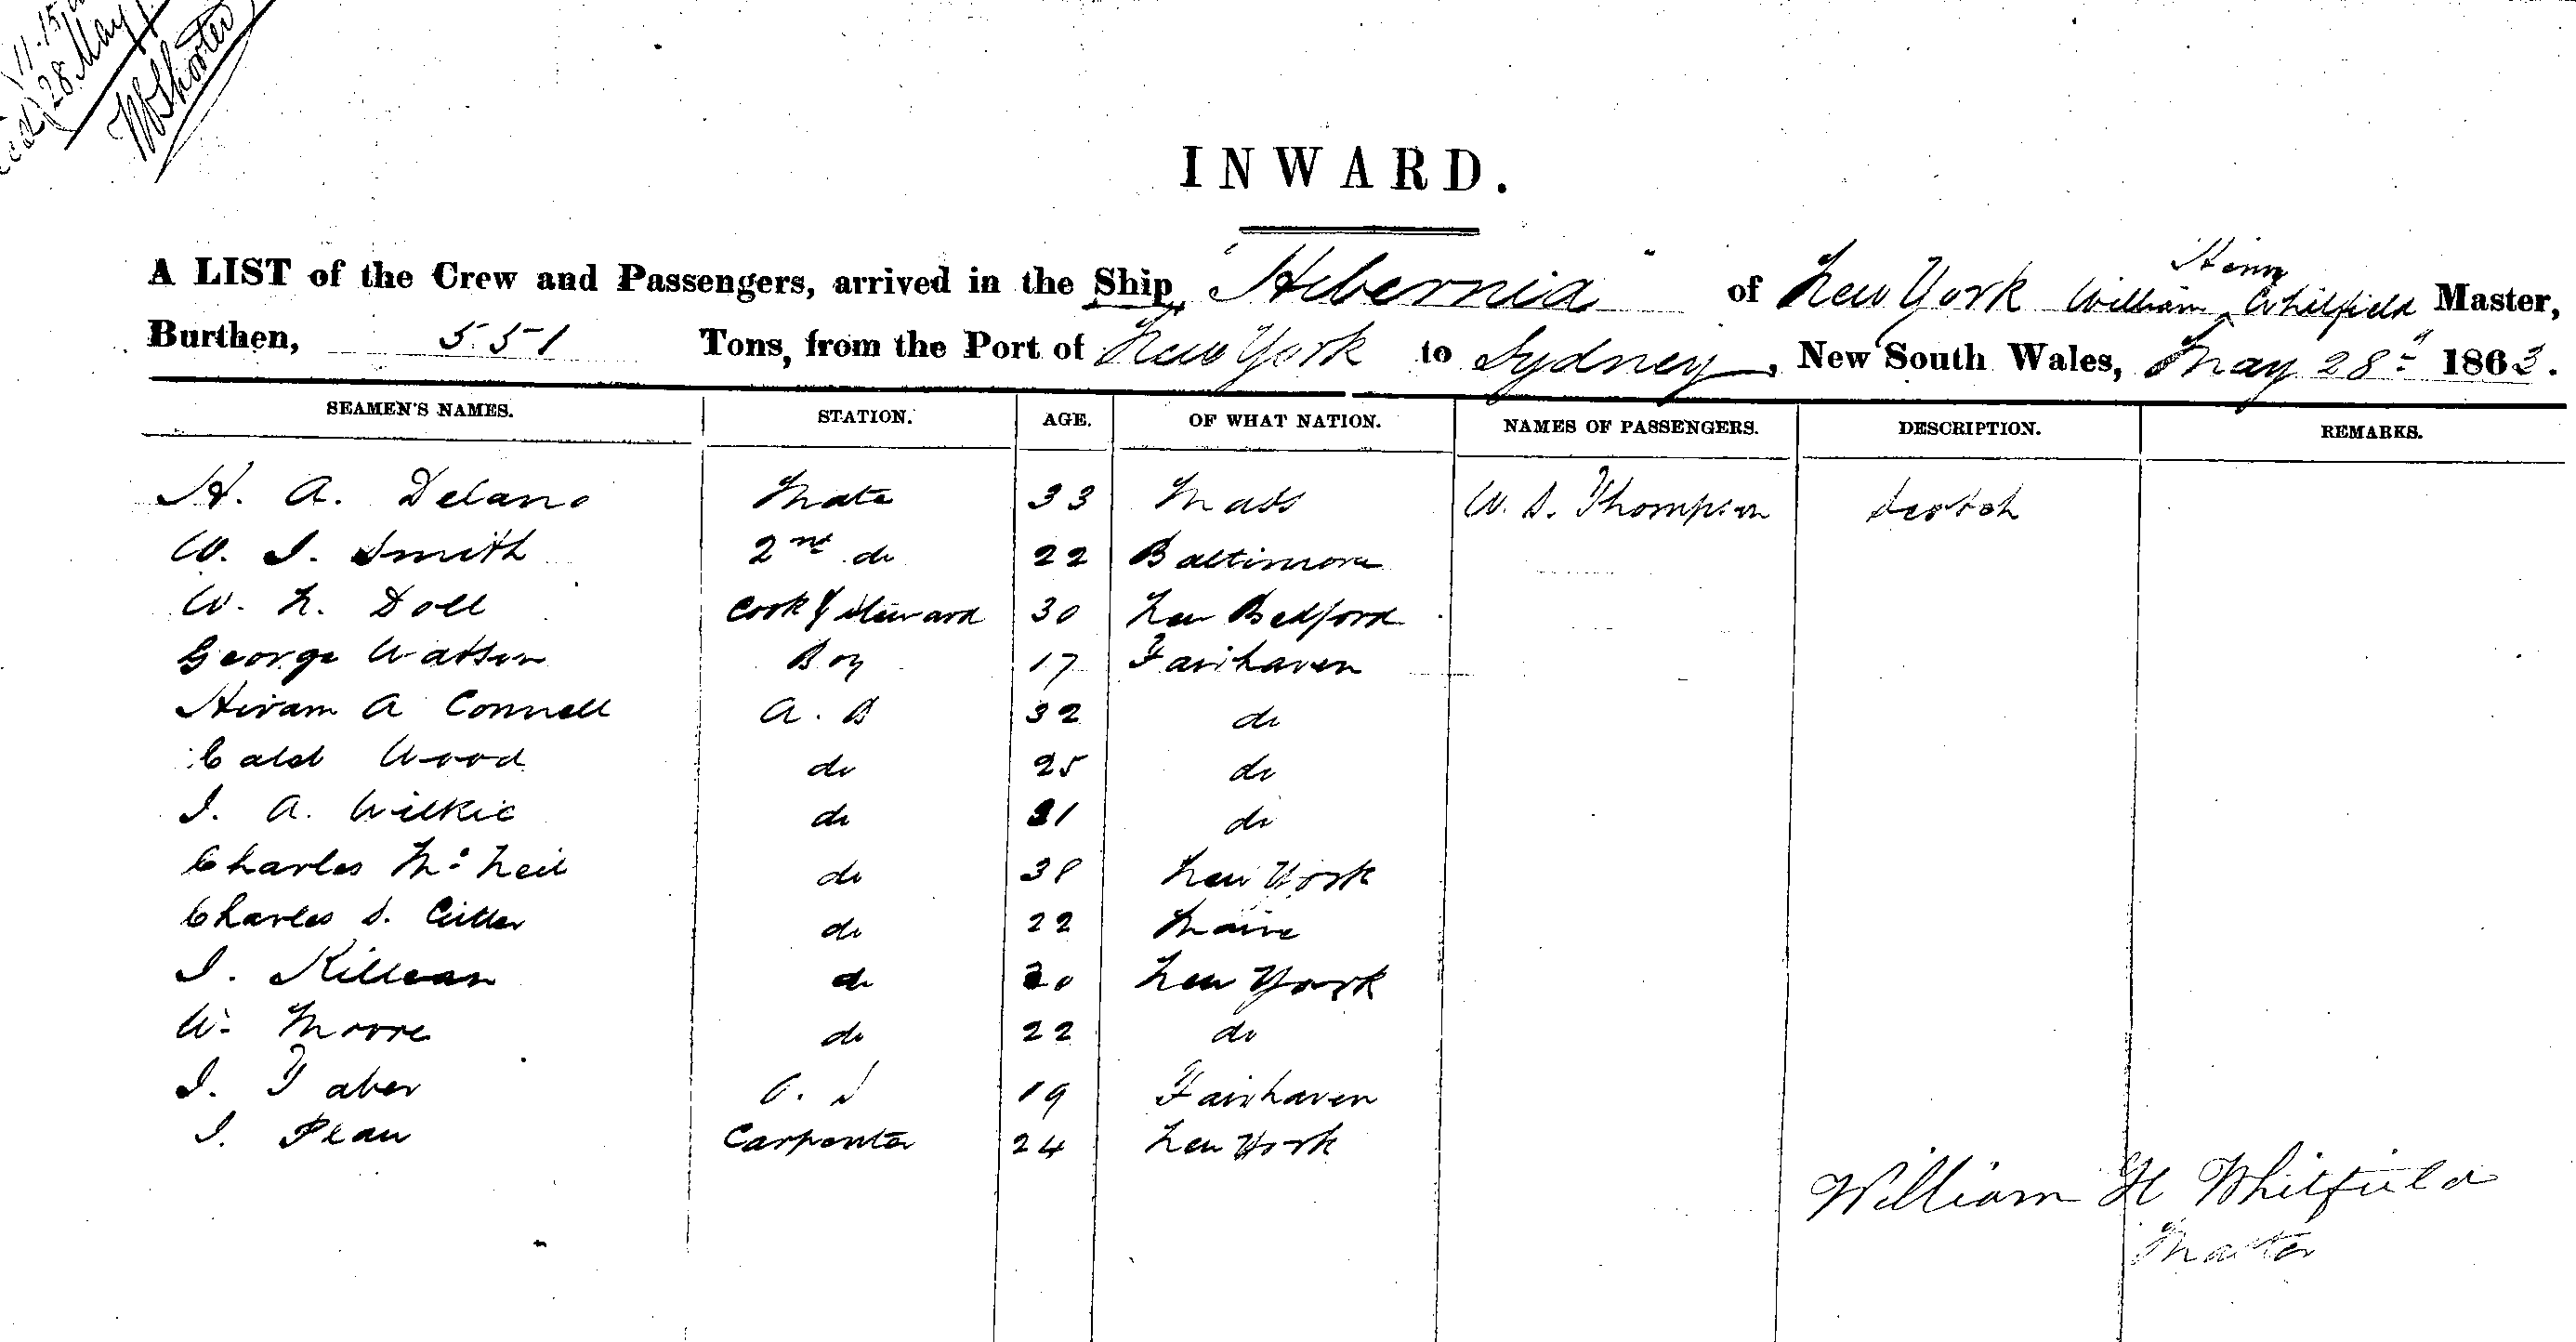 11.15
28 May
W Shorter
INWARD.
A LIST of the Crew and Passengers, arrived in the Ship "Hibernia" of New York William Henry Whitfield Master,
Burthen, 551 Tons, from the Port of New York to Sydney, New South Wales, May 28th 1863.
SEAMEN'S NAMES. STATION. AGE. OF WHAT NATION. NAMES OF PASSENGERS. DESCRIPTION. REMARKS.
H. A. Delano Mate 33 Mass W. S. Thompson Scotch
W. J. Smith 2nd do 22 Baltimore
W. N. Doll Cook & Steward 30 New Bedford
George Watson Boy 17 Fairhaven
Hiram A Connell A. B 32 do
Caleb Wood do 25 do
J. A. Wilkie do 31 do
Charles Mc Neil do 38 New York
Charles S. Cutler do 22 Maine
J. Killean do 20 New York
W. Moore do 22 do
J. Taber O. S 19 Fairhaven
J. Plau Carpenter 24 New York
William H Whitfield
Master